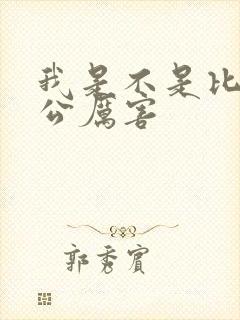 我是不是比
公厉害
郭秀宾